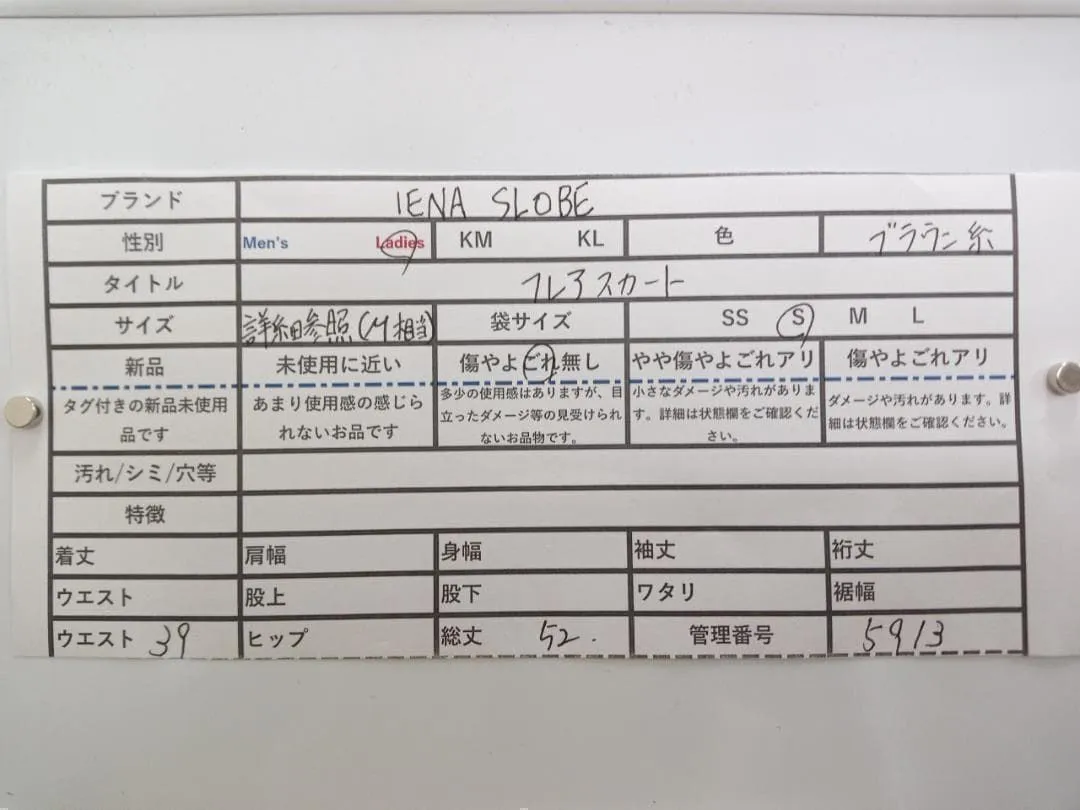 ブランド IENA SLOBE
性別 Men's Ladies KM KL 色 ブラウン系
タイトル フレアスカート
サイズ 詳細参照(M相当) 袋サイズ SS S M L
新品 未使用に近い 傷やよごれ無し やや傷やよごれアリ 傷やよごれアリ
タグ付きの新品未使用
品です
あまり使用感の感じら
れないお品です
多少の使用感はありますが、目
立ったダメージ等の見受けられ
ないお品物です。
小さなダメージや汚れがありま
す。詳細は状態欄をご確認くだ
さい。
ダメージや汚れがあります。詳
細は状態欄をご確認ください。
汚れ/シミ/穴等
特徴
着丈 肩幅 身幅 袖丈 裄丈
ウエスト 股上 股下 ワタリ 裾幅
ウエスト 39 ヒップ 総丈 52. 管理番号 5913